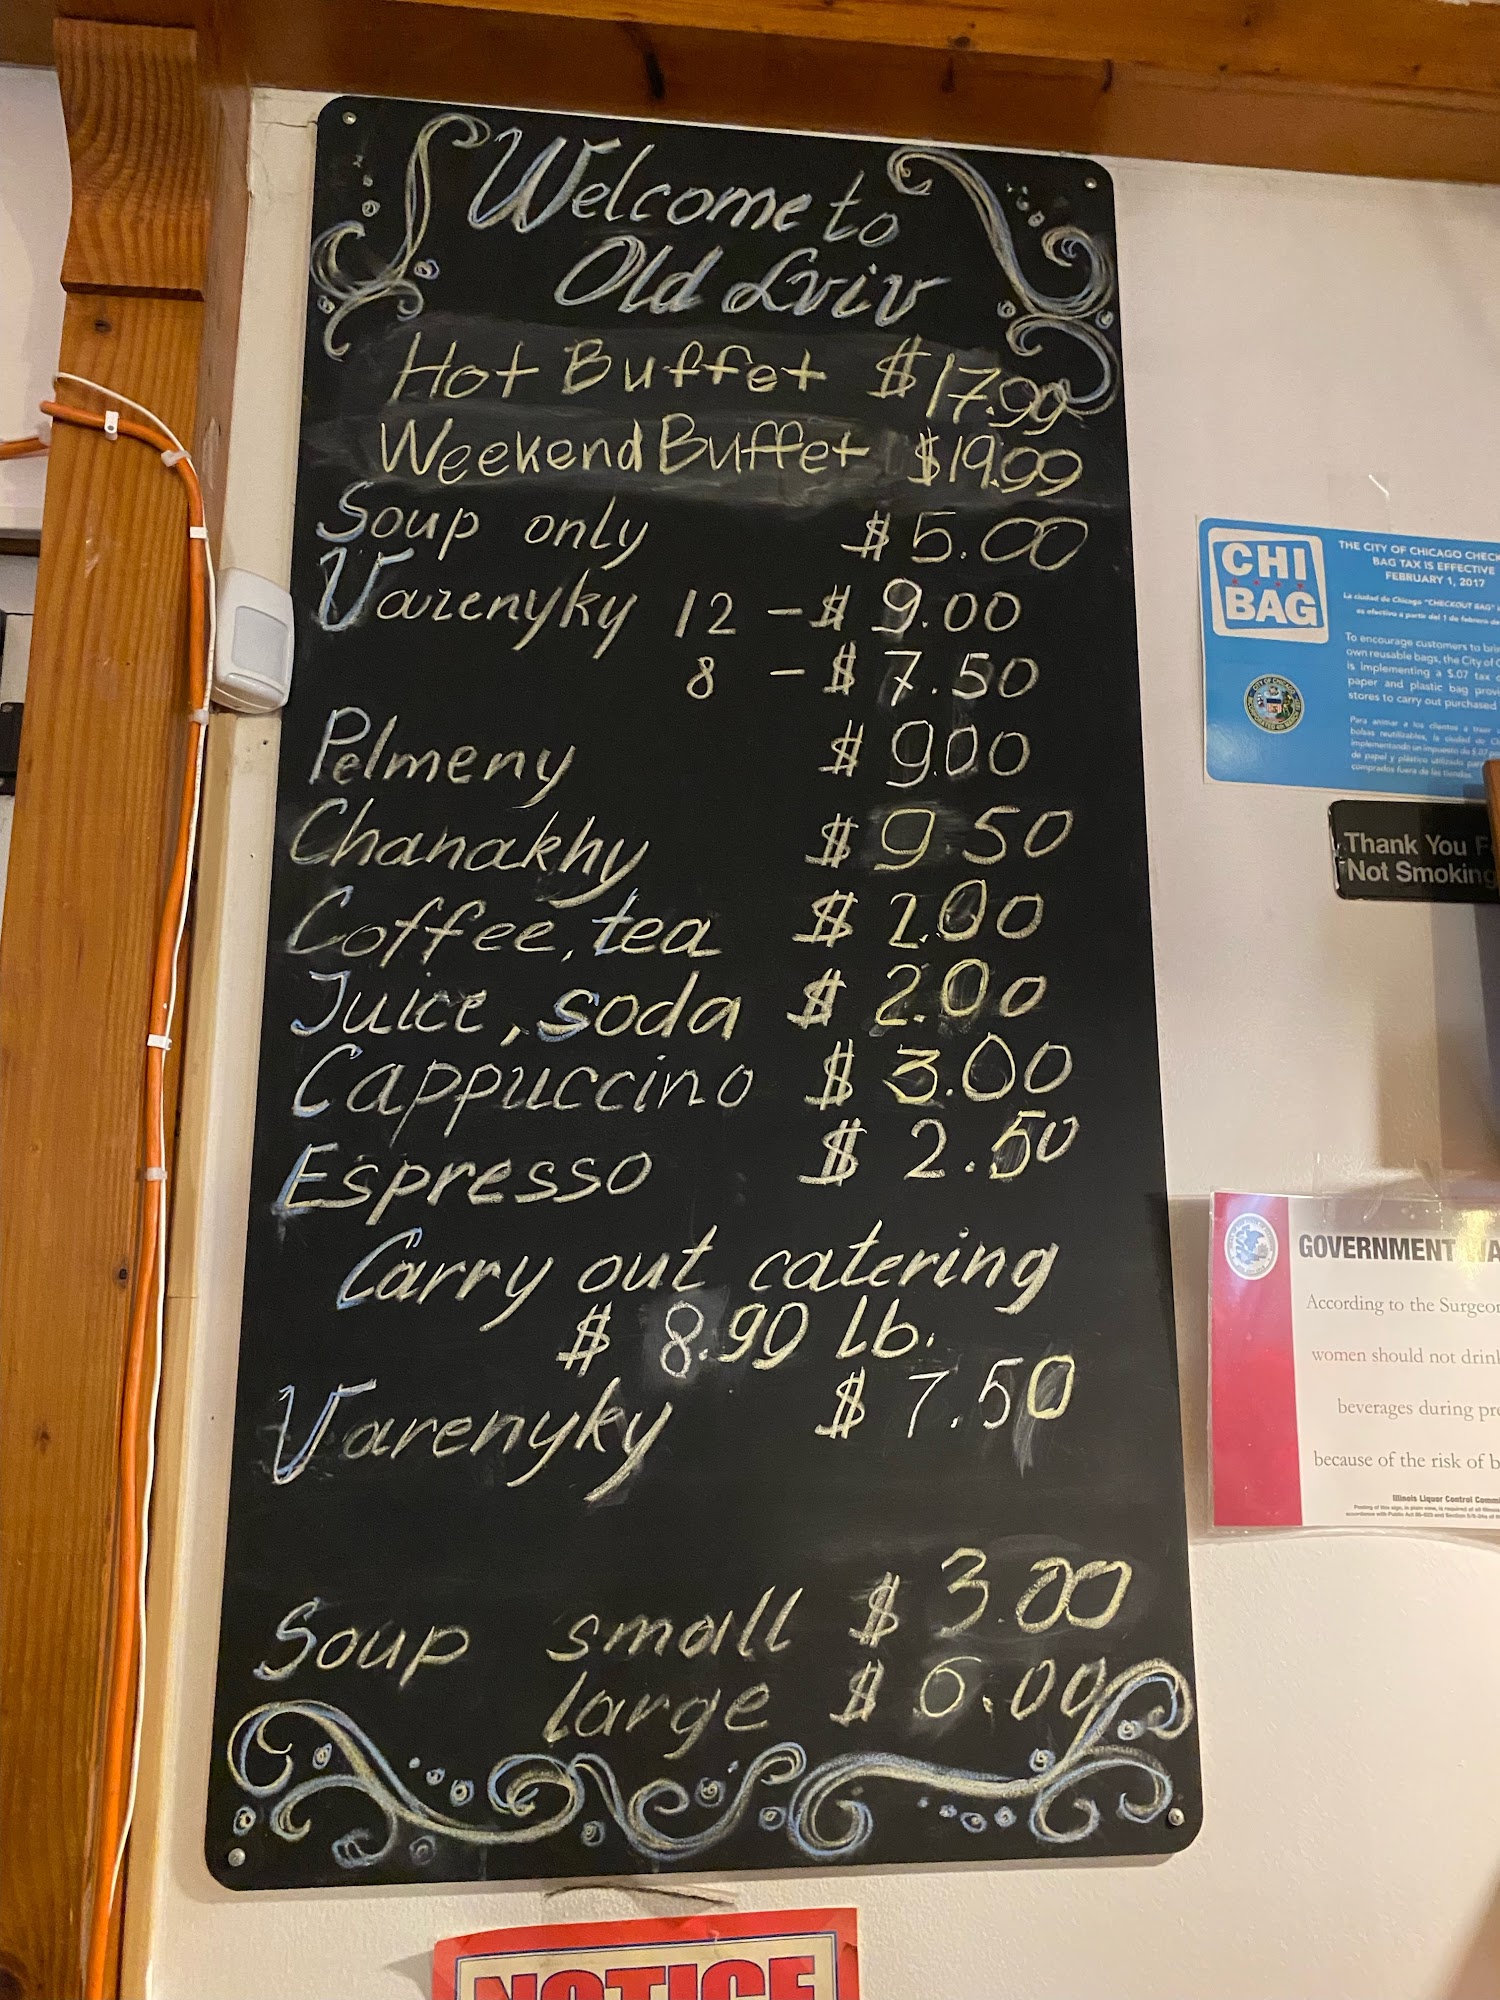 Welcome to
Old Lviv
Hot Buffet $17.99
Weekend Buffet $19.99
Soup only $5.00
Varenyky 12 - $9.00
8 - $7.50
Pelmeny $9.00
Chanakhy $9.50
Coffee, tea $2.00
Juice, soda $2.00
Cappuccino $3.00
Espresso $2.50
Carry out catering
$8.99 lb.
Varenyky $7.50
Soup small $3.00
large $6.00
CHI
BAG
THE CITY OF CHICAGO CHECK
BAG TAX IS EFFECTIVE
FEBRUARY 1, 2017
La ciudad de Chicago "CHECKOUT BAG"
es efectivo a partir del 1 de febrero
To encourage customers to
own reusable bags, the City of
is implementing a $.07 tax
paper and plastic bag
stores to carry out purchased
Para animar a los clientes a
bolsas reutilizables, la ciudad de
implementando un impuesto de $.07
de papel y plástico utilizado
comprados fuera de las tiendas.
Thank You
Not Smoking
GOVERNMENT
According to the Surgeon
women should not drink
beverages during
because of the risk of
Illinois Liquor Control
NOTICE